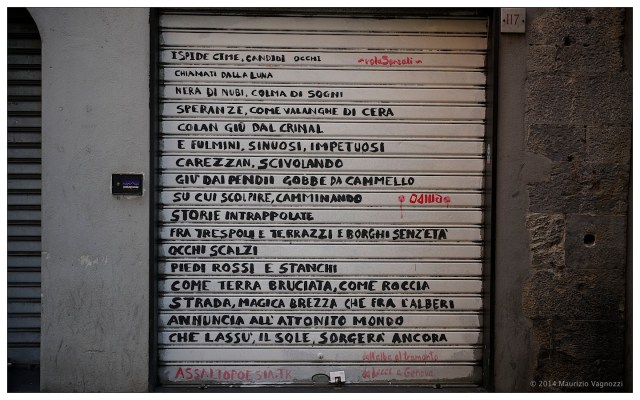 117
ISPIDE CIME, CANDIDI OCCHI
CHIAMATI DALLA LUNA
NERA DI NUBI, COLMA DI SOGNI
SPERANZE, COME VALANGHE DI CERA
COLAN GIÙ DAL CRINAL
E FULMINI, SINUOSI, IMPETUOSI
CAREZZAN, SCIVOLANDO
GIU' DAI PENDII GOBBE DA CAMMELLO
SU CUI SCOLPIRE, CAMMINANDO
STORIE INTRAPPOLATE
FRA TRESPOLI E TERRAZZI E BORGHI SENZ'ETA'
OCCHI SCALZI
PIEDI ROSSI E STANCHI
COME TERRA BRUCIATA, COME ROCCIA
STRADA, MAGICA BREZZA CHE FRA L'ALBERI
ANNUNCIA ALL'ATTONITO MONDO
CHE LASSU', IL SOLE, SORGERA' ANCORA
dall'alba al tramonto
ASSALTIPOESIA.TK
© 2014 Maurizio Vagnozzi